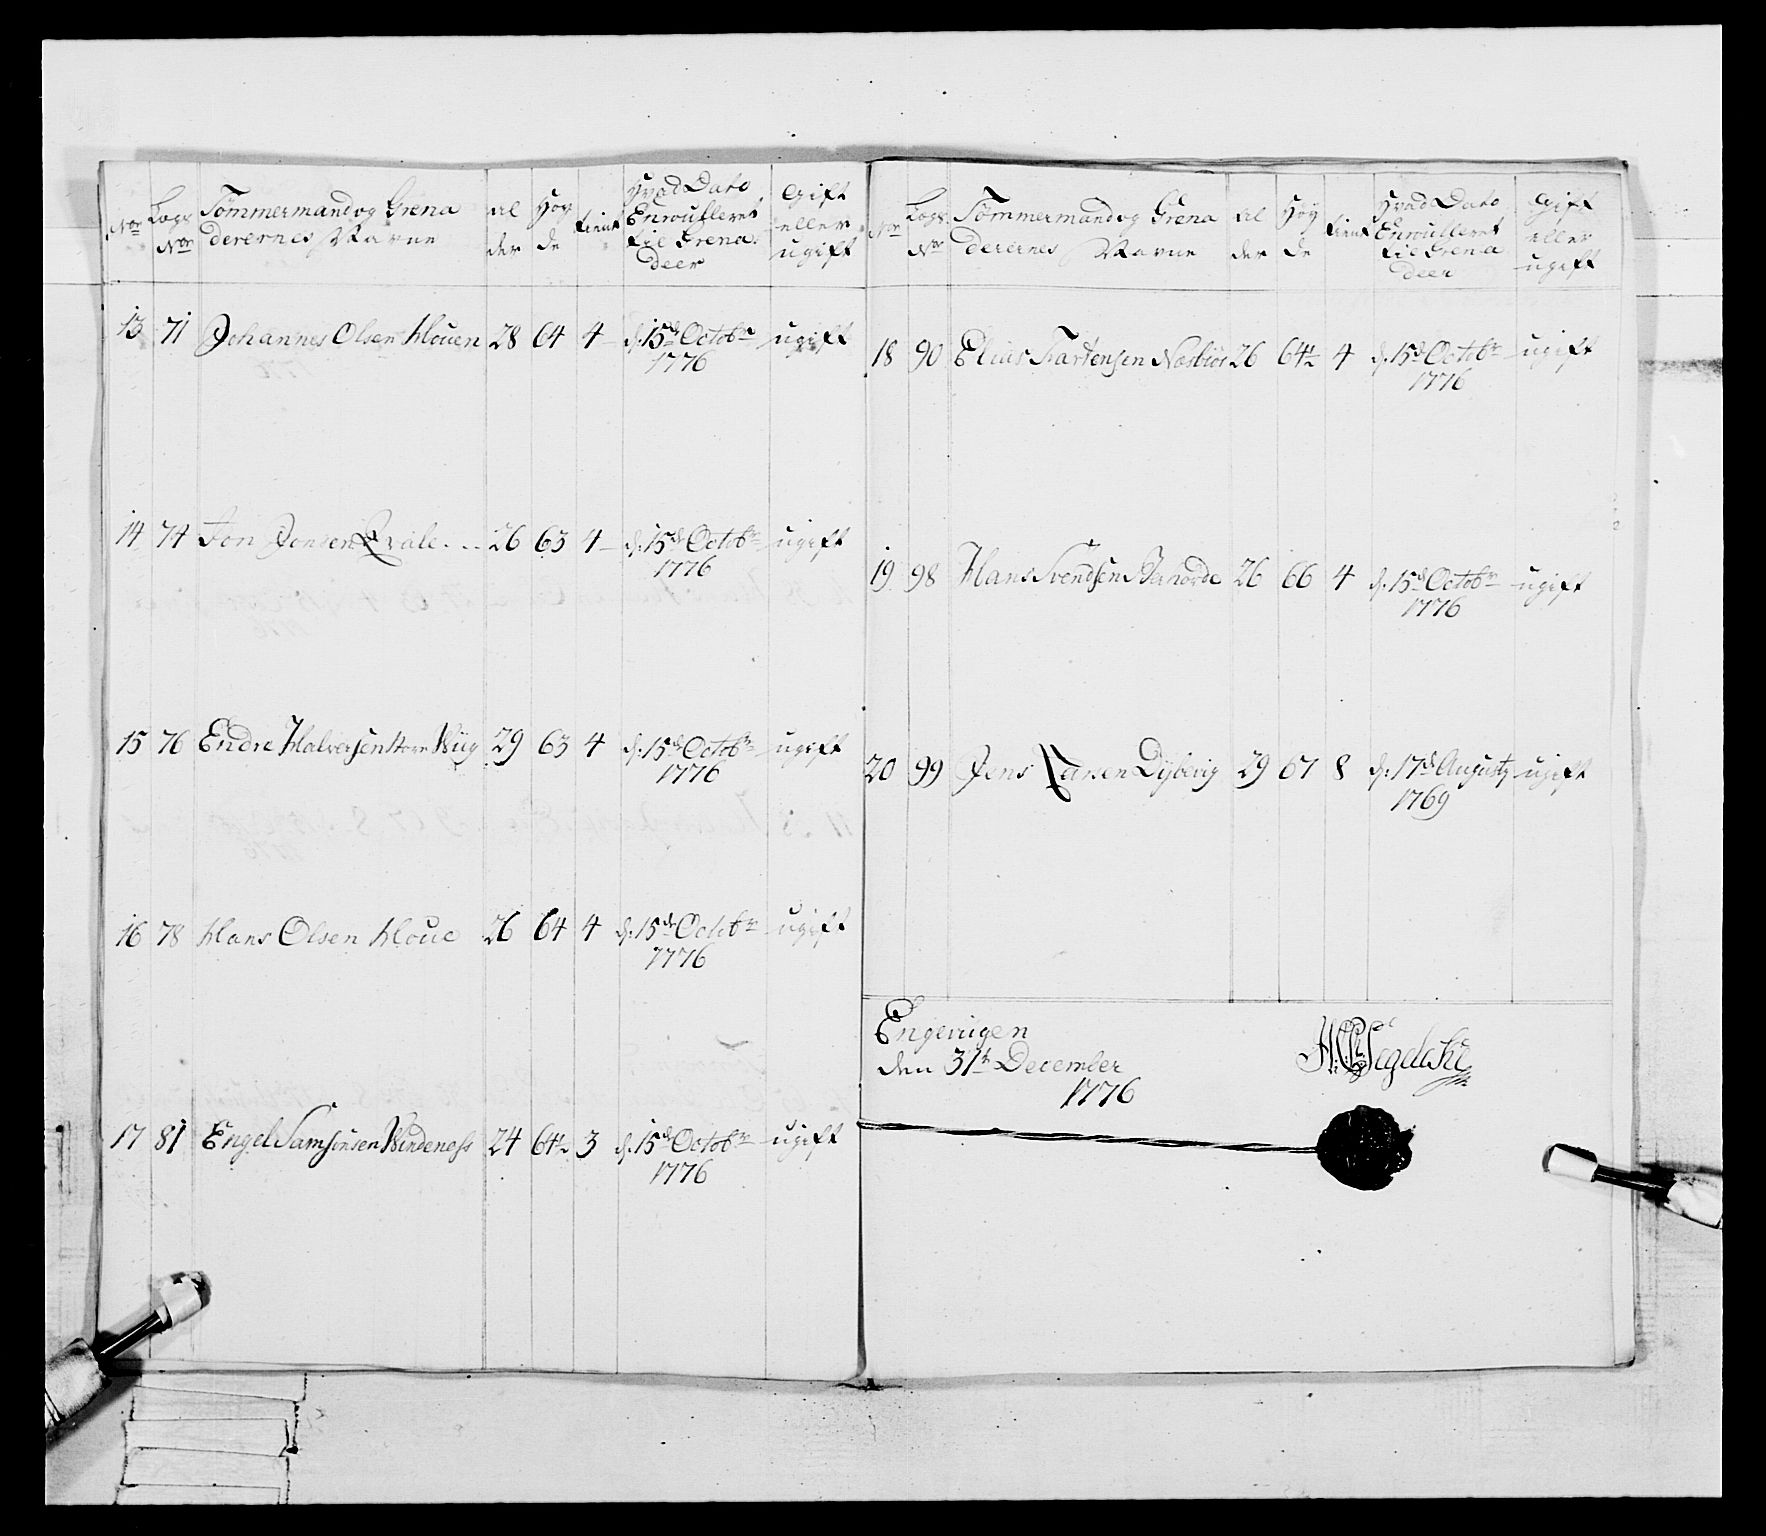 No: Lægs No: Tømmermand og Grenaderernes Navne Alder Høyde tient Hvad Dato Enroulleret til Grenadeer Gift eller ugift
13 71 Johannes Olsen Houen 28 64 4 d: 15de Octobr 1776 ugift
14 74 Jon Jonsen Qvale 26 63 4 d: 15de Octobr 1776 ugift
15 76 Endre Halversen Wiig 29 63 4 d: 15de Octobr 1776 ugift
16 78 Hans Olsen Houe 26 64 4 d: 15de Octobr 1776 ugift
17 81 Engel Samsonsen Windeness 24 64½ 3 d: 15de Octobr 1776 ugift
No: Lægs No: Tømmermand og Grenaderernes Navne Alder Höyde tient Hvad Dato Enroulleret til Grenadeer Gift eller ugift
18 90 Elias 26 64½ 4 d: 15de Octobr 1776 ugift
19 98 Hans Svendsen 26 66 4 d: 15de Octobr 1776 ugift
20 99 Jens Larsen Dybevig 29 67 8 d: 17de Augusty 1769 ugift
Engevigen
den 31te December
1776